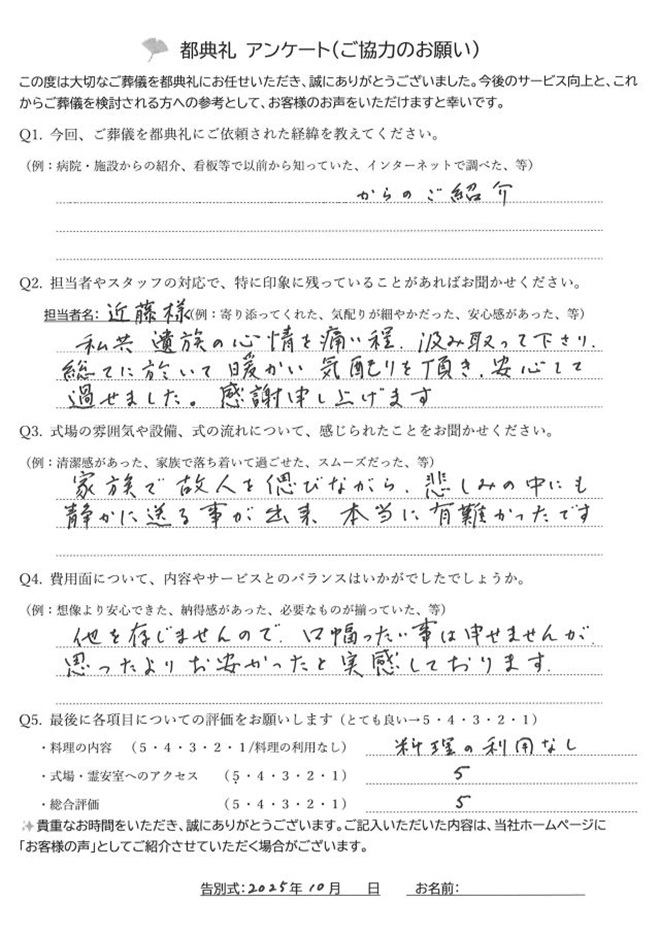 都典礼 アンケート(ご協力のお願い)
この度は大切なご葬儀を都典礼にお任せいただき、誠にありがとうございました。今後のサービス向上と、これ
からご葬儀を検討される方への参考として、お客様のお声をいただけますと幸いです。
Q1. 今回、ご葬儀を都典礼にご依頼された経緯を教えてください。
(例：病院・施設からの紹介、看板等で以前から知っていた、インターネットで調べた、等)
からのご紹介
Q2. 担当者やスタッフの対応で、特に印象に残っていることがあればお聞かせください。
担当者名：近藤様(例：寄り添ってくれた、気配りが細やかだった、安心感があった、等)
私共 遺族の心情を痛い程、汲み取って下さり、
総てに於いて暖かい気配りを頂き、安心して
過せました。感謝申し上げます
Q3. 式場の雰囲気や設備、式の流れについて、感じられたことをお聞かせください。
(例：清潔感があった、家族で落ち着いて過ごせた、スムーズだった、等)
家族で故人を偲びながら、悲しみの中にも
静かに送る事が出来 本当に有難かったです
Q4. 費用面について、内容やサービスとのバランスはいかがでしたでしょうか。
(例：想像より安心できた、納得感があった、必要なものが揃っていた、等)
他を存じませんので、口幅ったい事は申せませんが、
思ったよりお安かったと実感しております。
Q5. 最後に各項目についての評価をお願いします(とても良い→5・4・3・2・1)
・料理の内容 (5・4・3・2・1/料理の利用なし) 料理の利用なし
・式場・霊安室へのアクセス (5・4・3・2・1) 5
・総合評価 (5・4・3・2・1) 5
貴重なお時間をいただき、誠にありがとうございます。ご記入いただいた内容は、当社ホームページに
「お客様の声」としてご紹介させていただく場合がございます。
告別式：2025年10月 日 お名前：